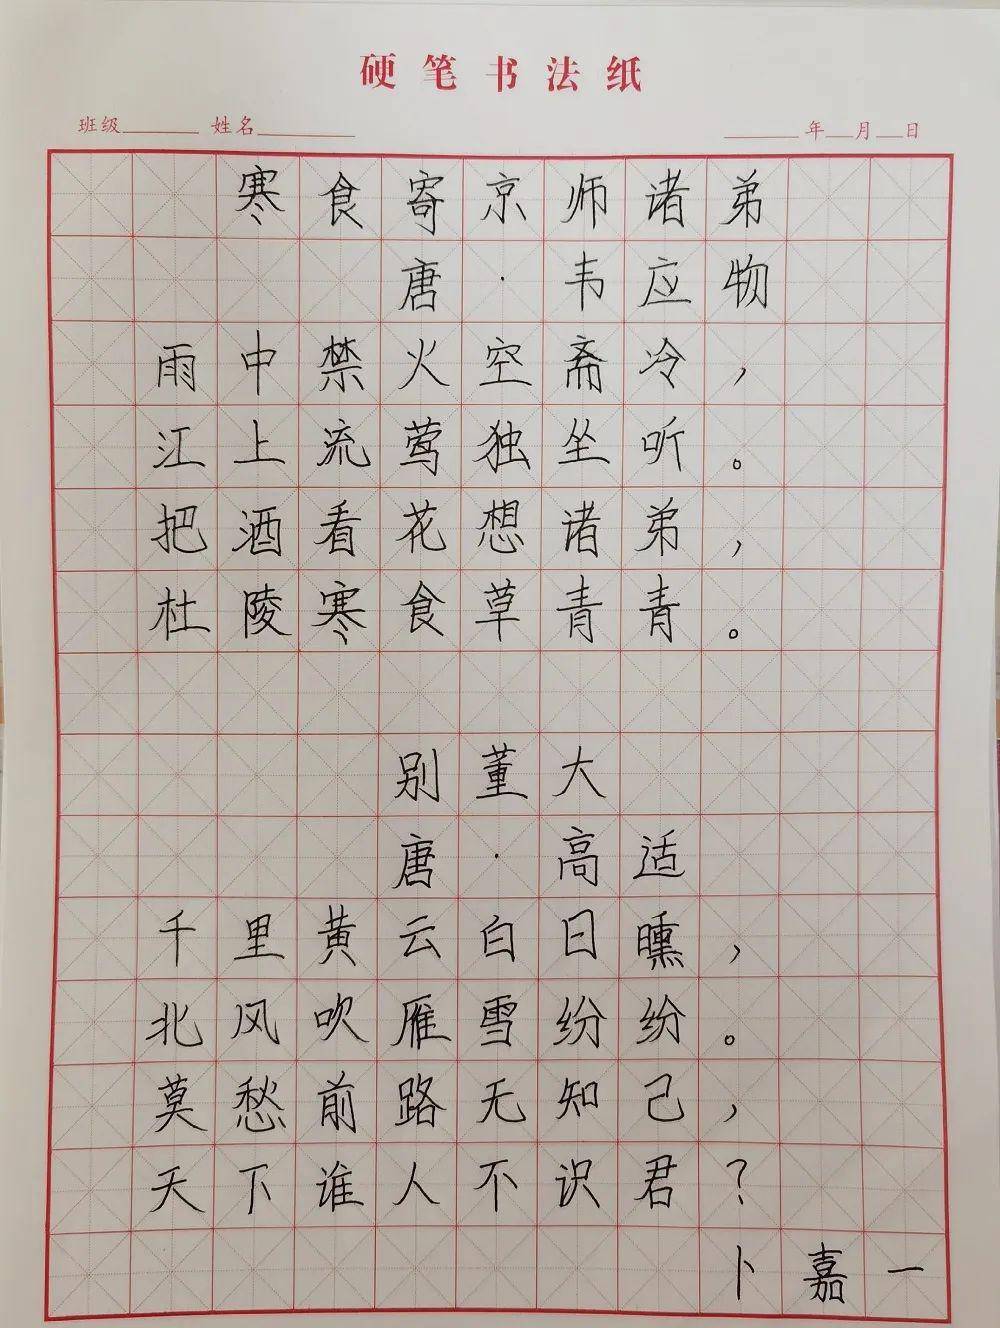 硬笔书法纸
班级 姓名 年 月 日
寒食寄京师诸弟
唐·韦应物
雨中禁火空斋冷，
江上流莺独坐听。
把酒看花想诸弟，
杜陵寒食草青青。
别董大
唐·高适
千里黄云白日曛，
北风吹雁雪纷纷。
莫愁前路无知己，
天下谁人不识君？
卜嘉一